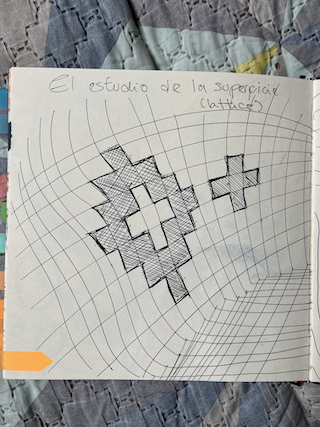 El estudio de la superpicie
(lattice)